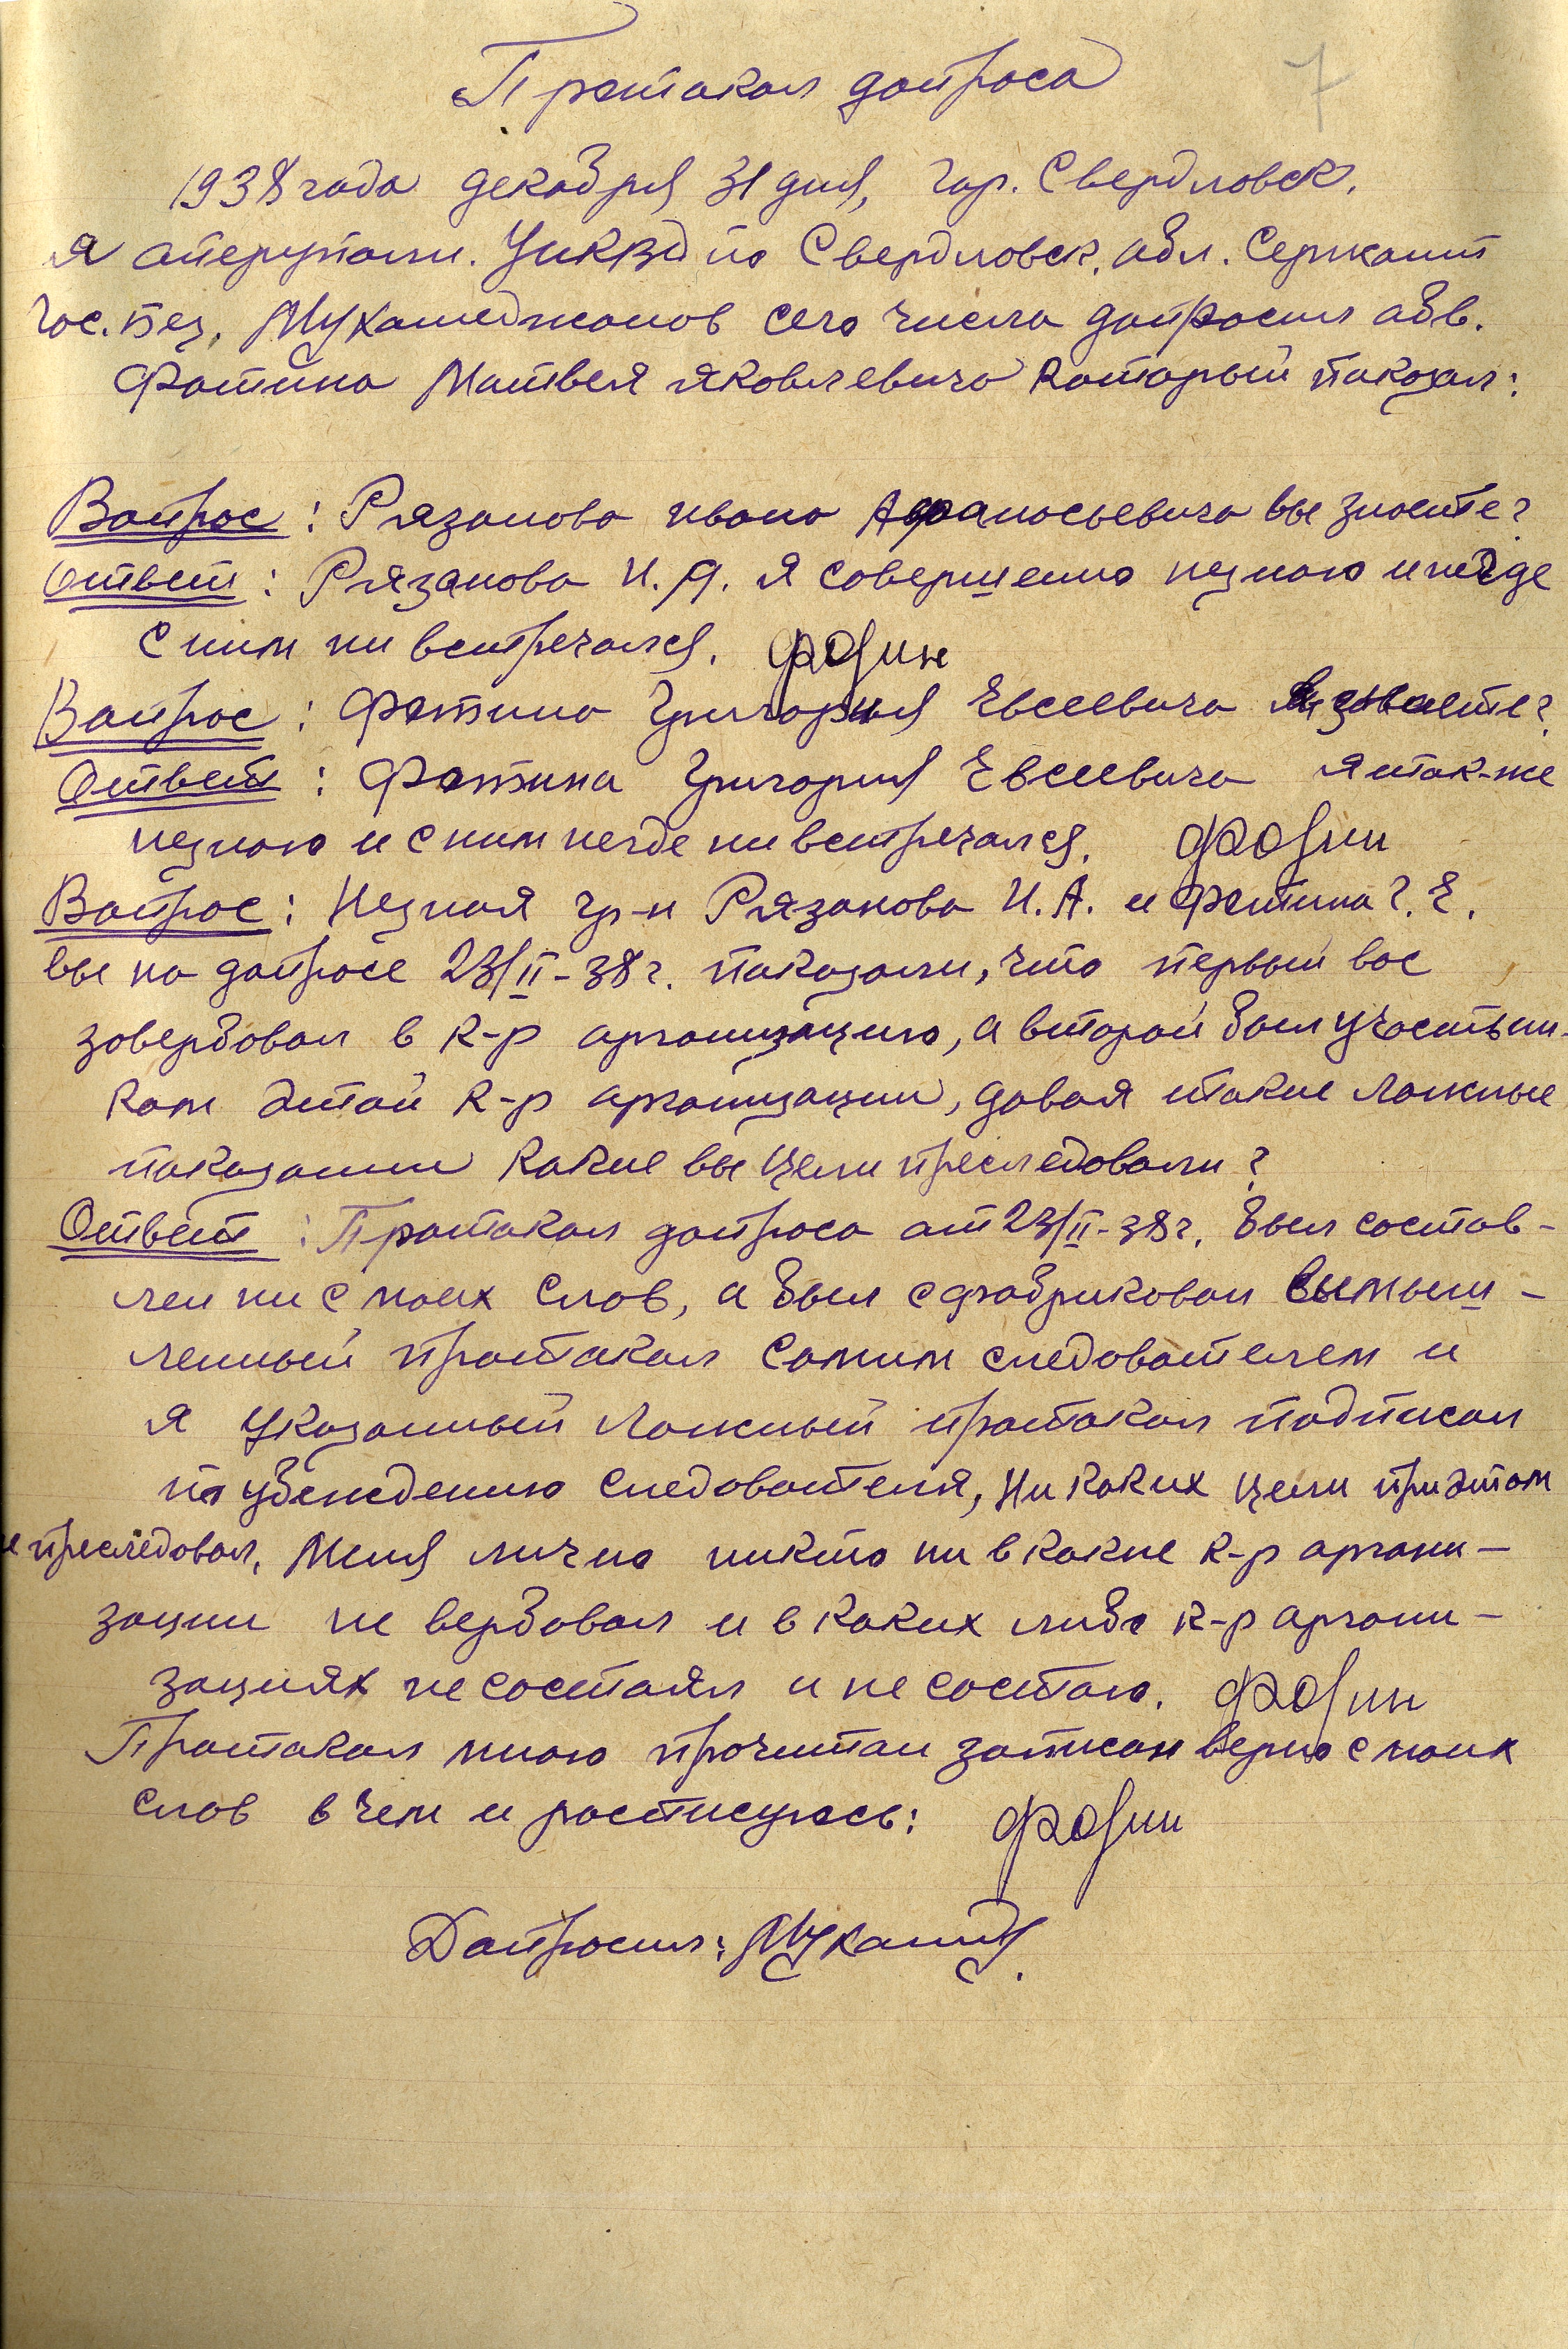 7
Протокол допроса
1938 года декабря 31 дня, гор. Свердловск.
Я оперуполн. УНКВД по Свердловск. обл. Сержант
гос. без. Мухамеджанов сего числа допросил обв.
Фотина Матвея Яковлевича который показал:
Вопрос: Рязанова Ивана Афанасьевича вы знаете?
Ответ: Рязанова И. А. я совершенно незнаю и негде
с ним ни встречался. Фотин
Вопрос: Фотина Григория Евсеевича вы знаете?
Ответ: Фотина Григория Евсеевича я так-же
незнаю и с ним негде ни встречался. Фотин
Вопрос: Незная гр-н Рязанова И. А. и Фотина Г. Е.
вы на допросе 23/II-38 г. показали, что первый вас
завербовал в к-р организацию, а второй был участни-
ком этой к-р организации, давая такие ложные
показании какие вы цели преследовали?
Ответ: Протокол допроса от 23/II-38 г. был состав-
лен ни с моих слов, а был сфабрикован вымыш-
ленный протокол самим следователем и
я указанный ложный протокол подписал
по убеждению следователя, ни каких цели при этом
не преследовал. Меня лично никто ни в какие к-р органи-
зации не вербовал и в каких либо к-р органи-
зациях не состоял и не состою. Фотин
Протокол мною прочитан записан верно с моих
слов в чем и роспишусь: Фотин
Допросил: Мухамед